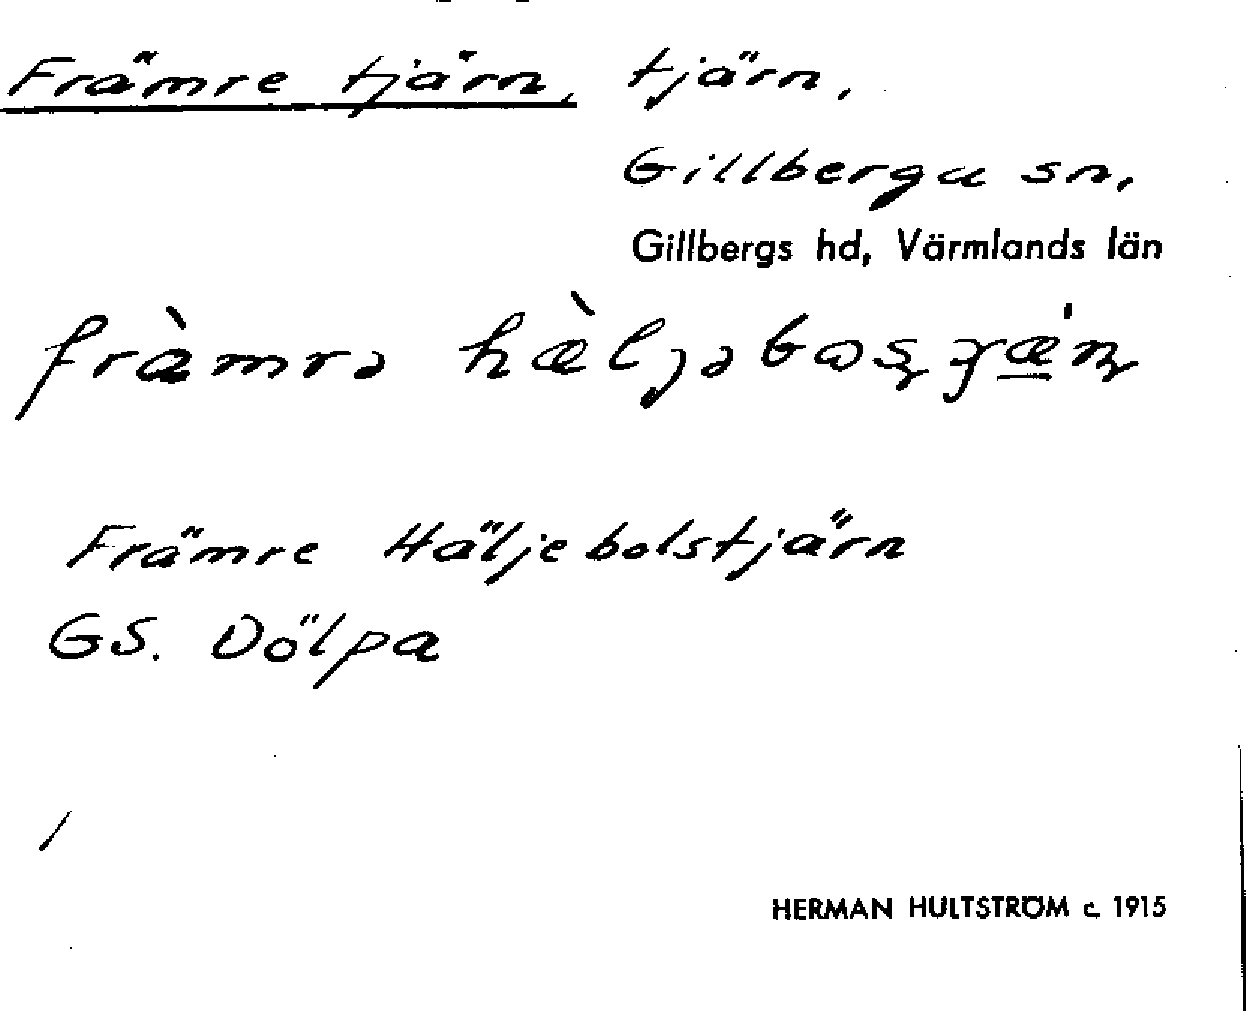 Främre tjärn, tjärn,
Gillberga sn,
Gillbergs hd, Värmlands län
Främre Häljebolstjärn
GS. Dölpa
HERMAN HULTSTRÖM c. 1915